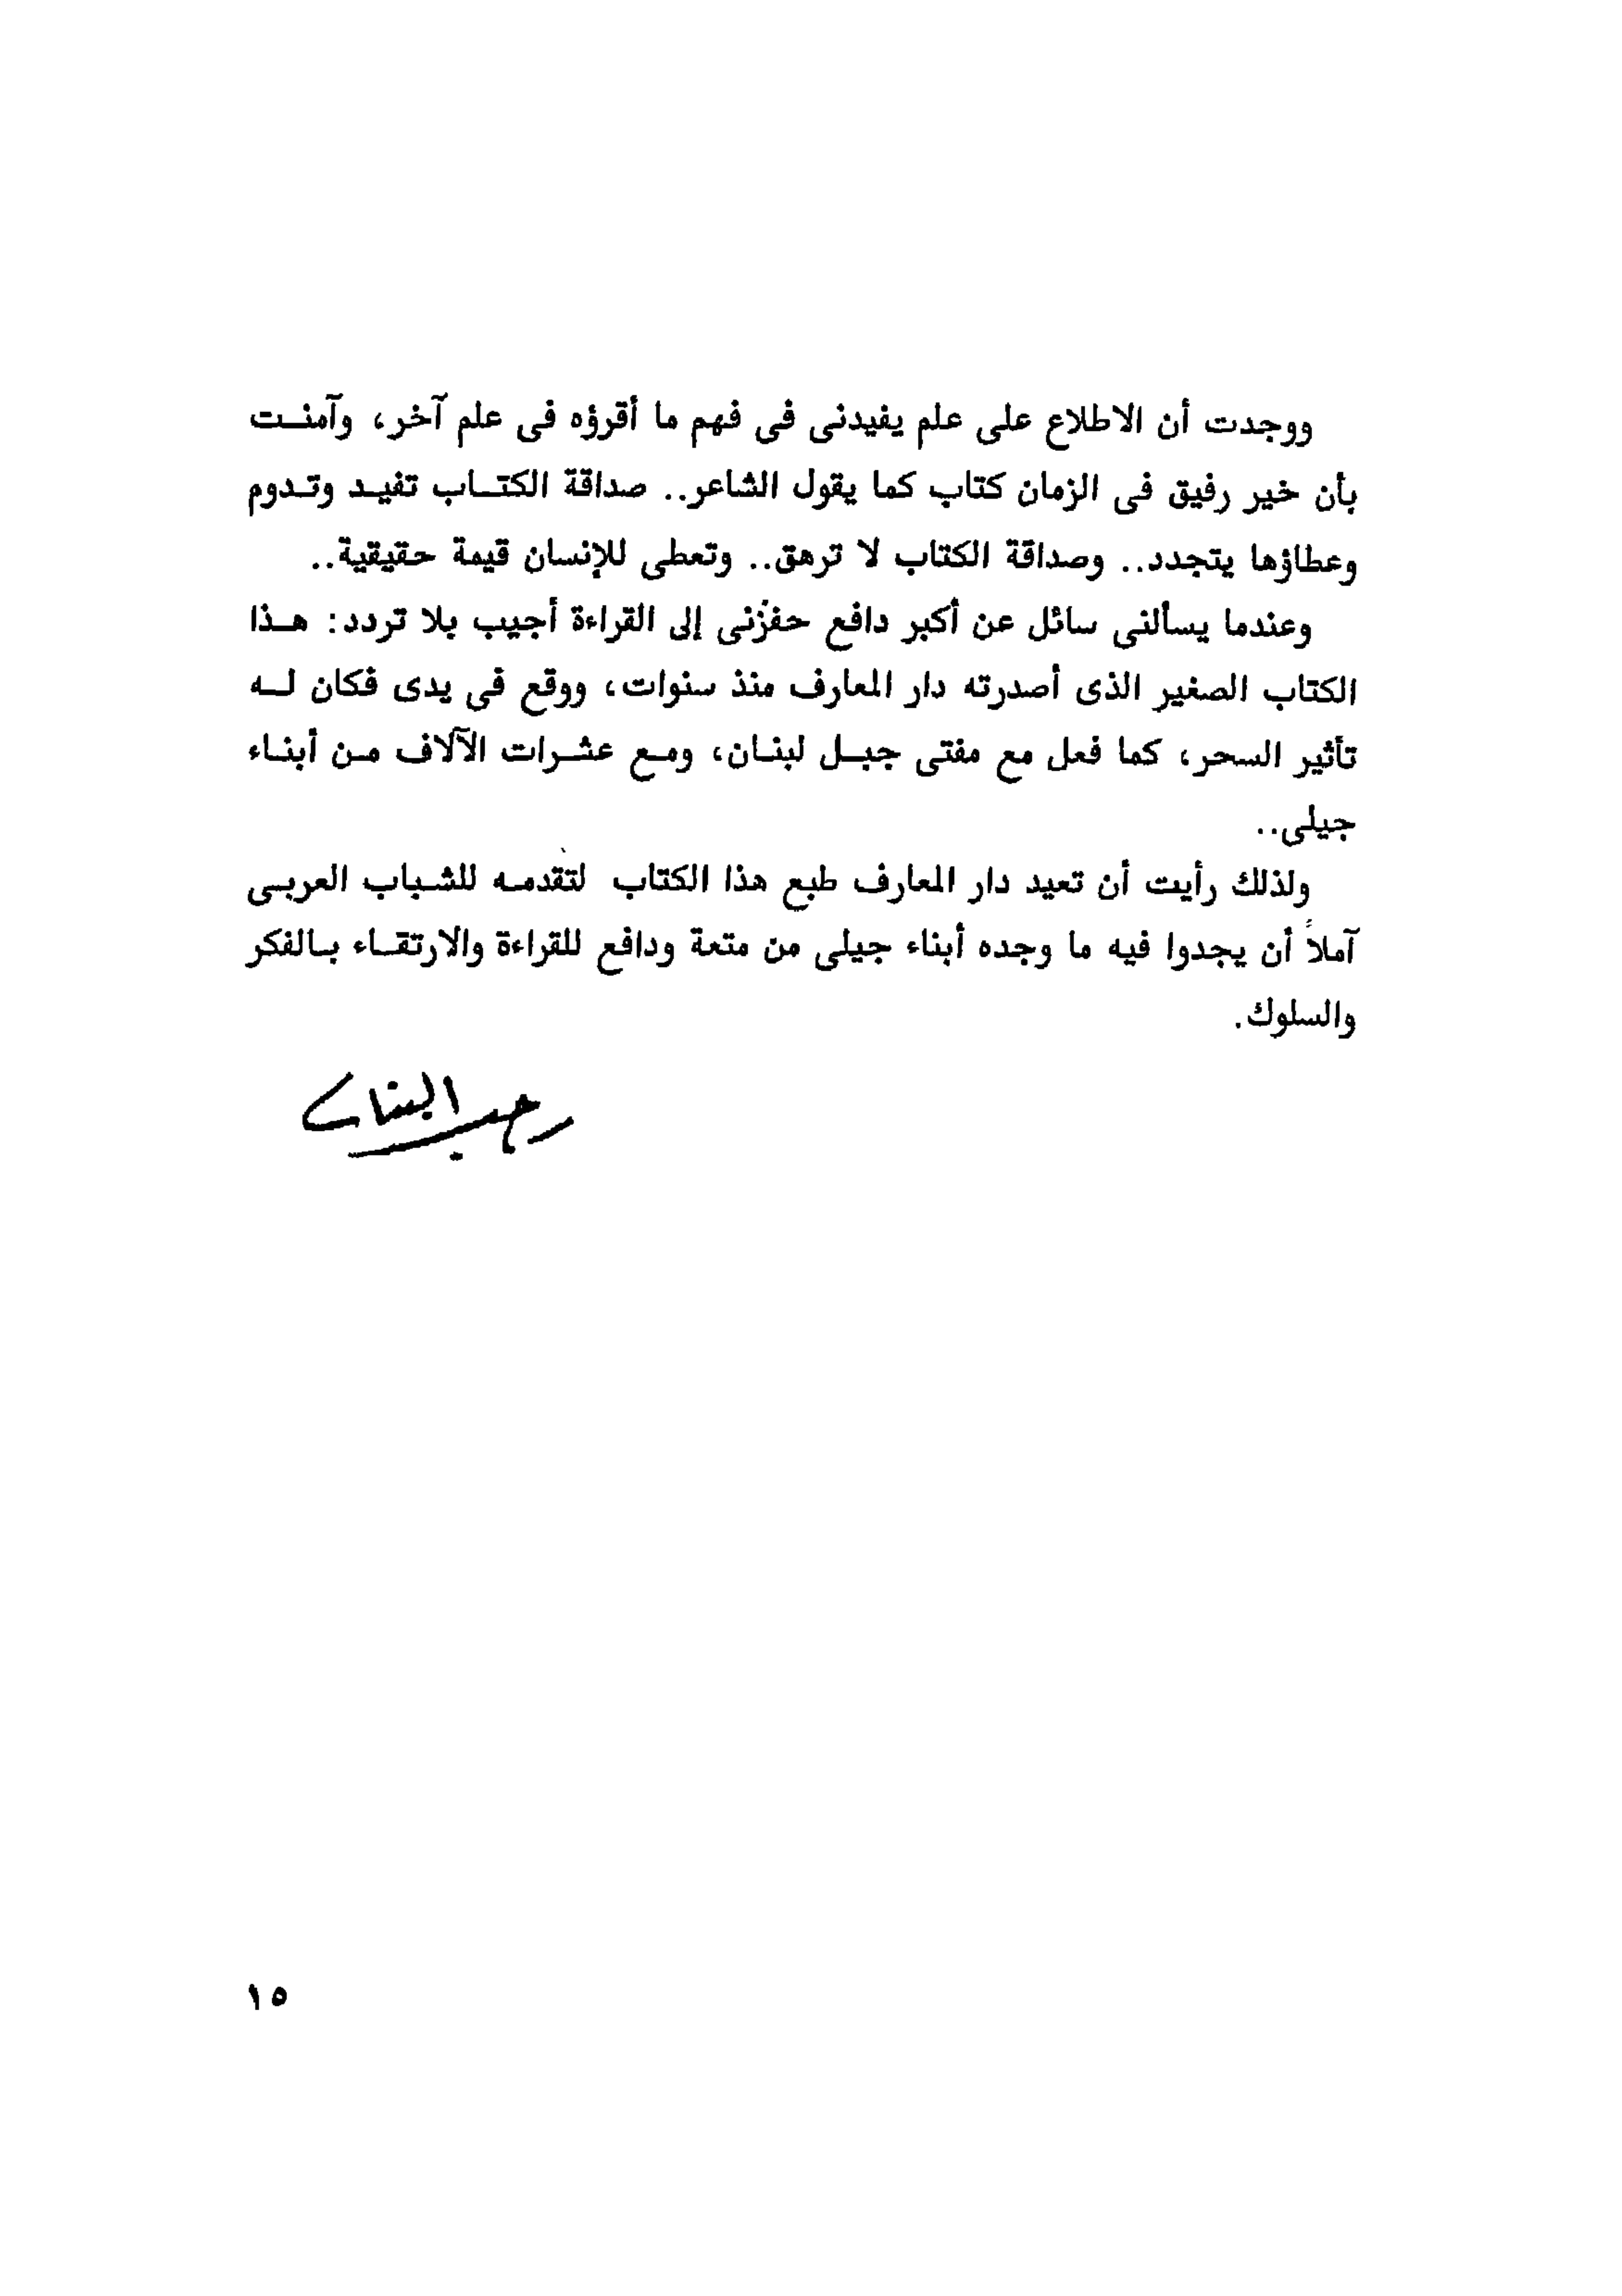 ووجدت أن الاطلاع على علم يفيدنى فى فهم ما أقرؤه فى علم آخر، وآمنت
بأن خير رفيق فى الزمان كتاب كما يقول الشاعر.. صداقة الكتاب تفيد وتدوم
وعطاؤها يتجدد.. وصداقة الكتاب لا ترهق.. وتعطى للإنسان قيمة حقيقية..
وعندما يسألنى سائل عن أكبر دافع حفزنى إلى القراءة أجيب بلا تردد: هذا
الكتاب الصغير الذى أصدرته دار المعارف منذ سنوات، ووقع فى يدى فكان له
تأثير السحر، كما فعل مع مفتى جبل لبنان، ومع عشرات الآلاف من أبناء
جيلى..
ولذلك رأيت أن تعيد دار المعارف طبع هذا الكتاب لتقدمه للشباب العربى
آملاً أن يجدوا فيه ما وجده أبناء جيلى من متعة ودافع للقراءة والارتقاء بالفكر
والسلوك.
رجب البنا
١٥